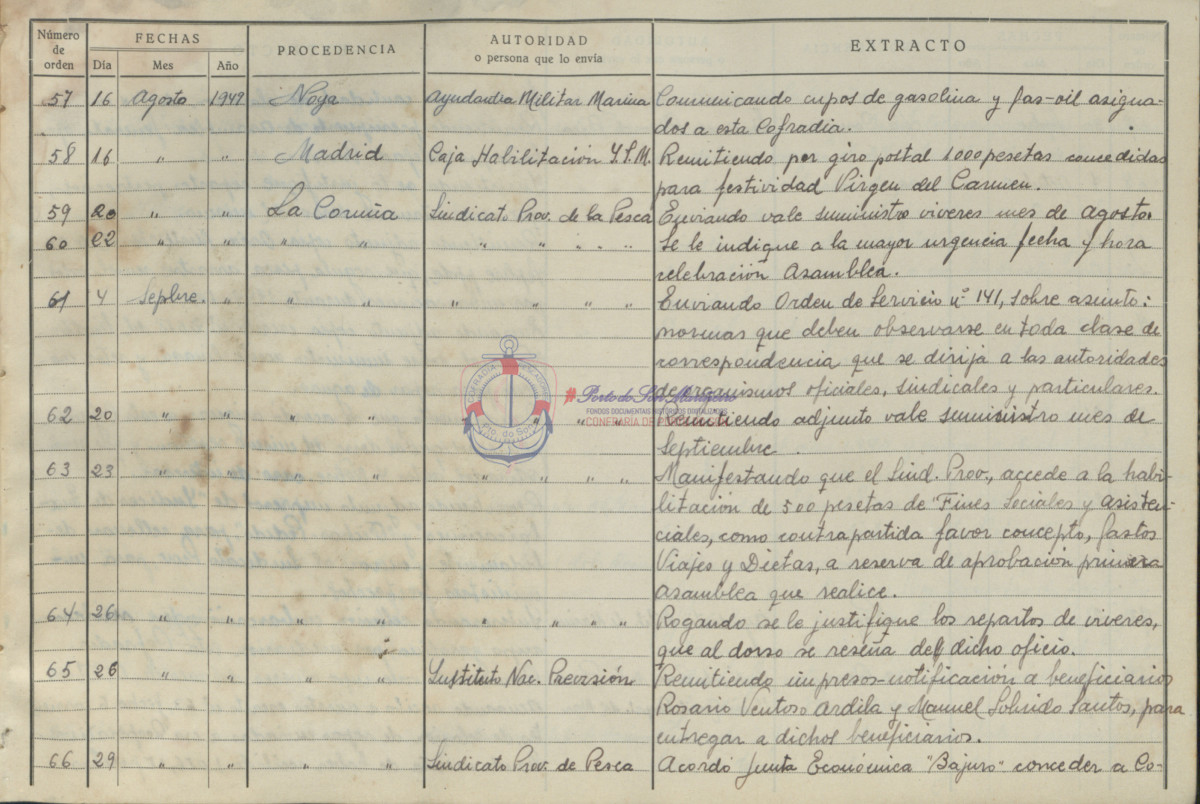 Número de orden FECHAS Día Mes Año PROCEDENCIA AUTORIDAD o persona que lo envía EXTRACTO
57 16 Agosto 1949 Noya Ayudantía Militar Marina Comunicando cupos de gasolina y gas-oil asigna-
dos a esta Cofradia.
58 16 " " Madrid Caja Habilitación I.S.M. Remitiendo por giro postal 1000 pesetas concedidas
para festividad Virgen del Carmen.
59 20 " " La Coruña Sindicato Prov. de la Pesca Enviando vale suministro viveres mes de Agosto.
60 22 " " " " " " " " Se le indique a la mayor urgencia fecha y hora
celebración Asamblea.
61 4 Sepbre. " " " " " " " Enviando Orden de Servicio nº 141, sobre asunto:
normas que deben observarse en toda clase de
correspondencia que se dirija a las autoridades
de organismos oficiales, sindicales y particulares.
62 20 " " " " " " " Remitiendo adjunto vale suministro mes de
Septiembre.
63 23 " " " " " " " " Manifestando que el Sind. Prov., accede a la habi-
litación de 500 pesetas de "Fines Sociales y asisten-
ciales, como contrapartida favor concepto, Gastos
Viajes y Dietas, a reserva de aprobación primera
Asamblea que realice.
64 26 " " " " " " " " Rogando se le justifique los repartos de viveres,
que al dorso se reseña del dicho oficio.
65 26 " " " " Instituto Nac. Previsión Remitiendo impresos-notificación a beneficiarios
Rosario Ventoso Ardila y Manuel Sobrido Santos, para
entregar a dichos beneficiarios.
66 29 " " " " Sindicato Prov. de Pesca Acordó Junta Económica "Bajuro" conceder a Co-
COFRADIA PESCADORES
Pto. do Son
#Porto do Son Mariñeiro
FONDOS DOCUMENTAIS HISTÓRICOS DIXITALIZADOS
CONFRARÍA DE